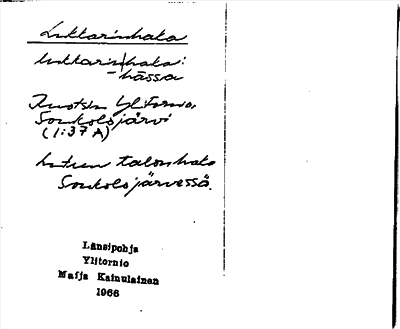 Lukkarinhaka
lukkarin|haka:
- hāssa
Ruotsin Ylitornio,
Soukolojärvi
(1:37 A)
talon haka
Soukolojärvessä.
Länsipohja
Ylitornio
Maija Kainulainen
1966